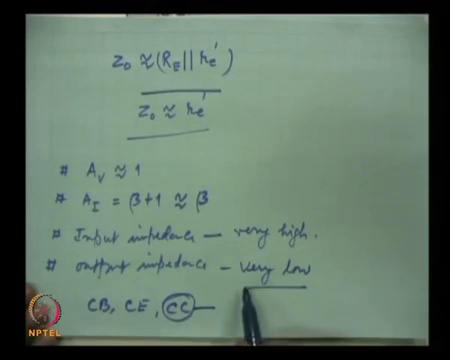 Zo ≈ (RE || re')
Zo ≈ re'
# AV ≈ 1
# AI = β+1 ≈ β
# Input impedance — very high.
# output impedance — very low
CB, CE, CC —
NPTEL